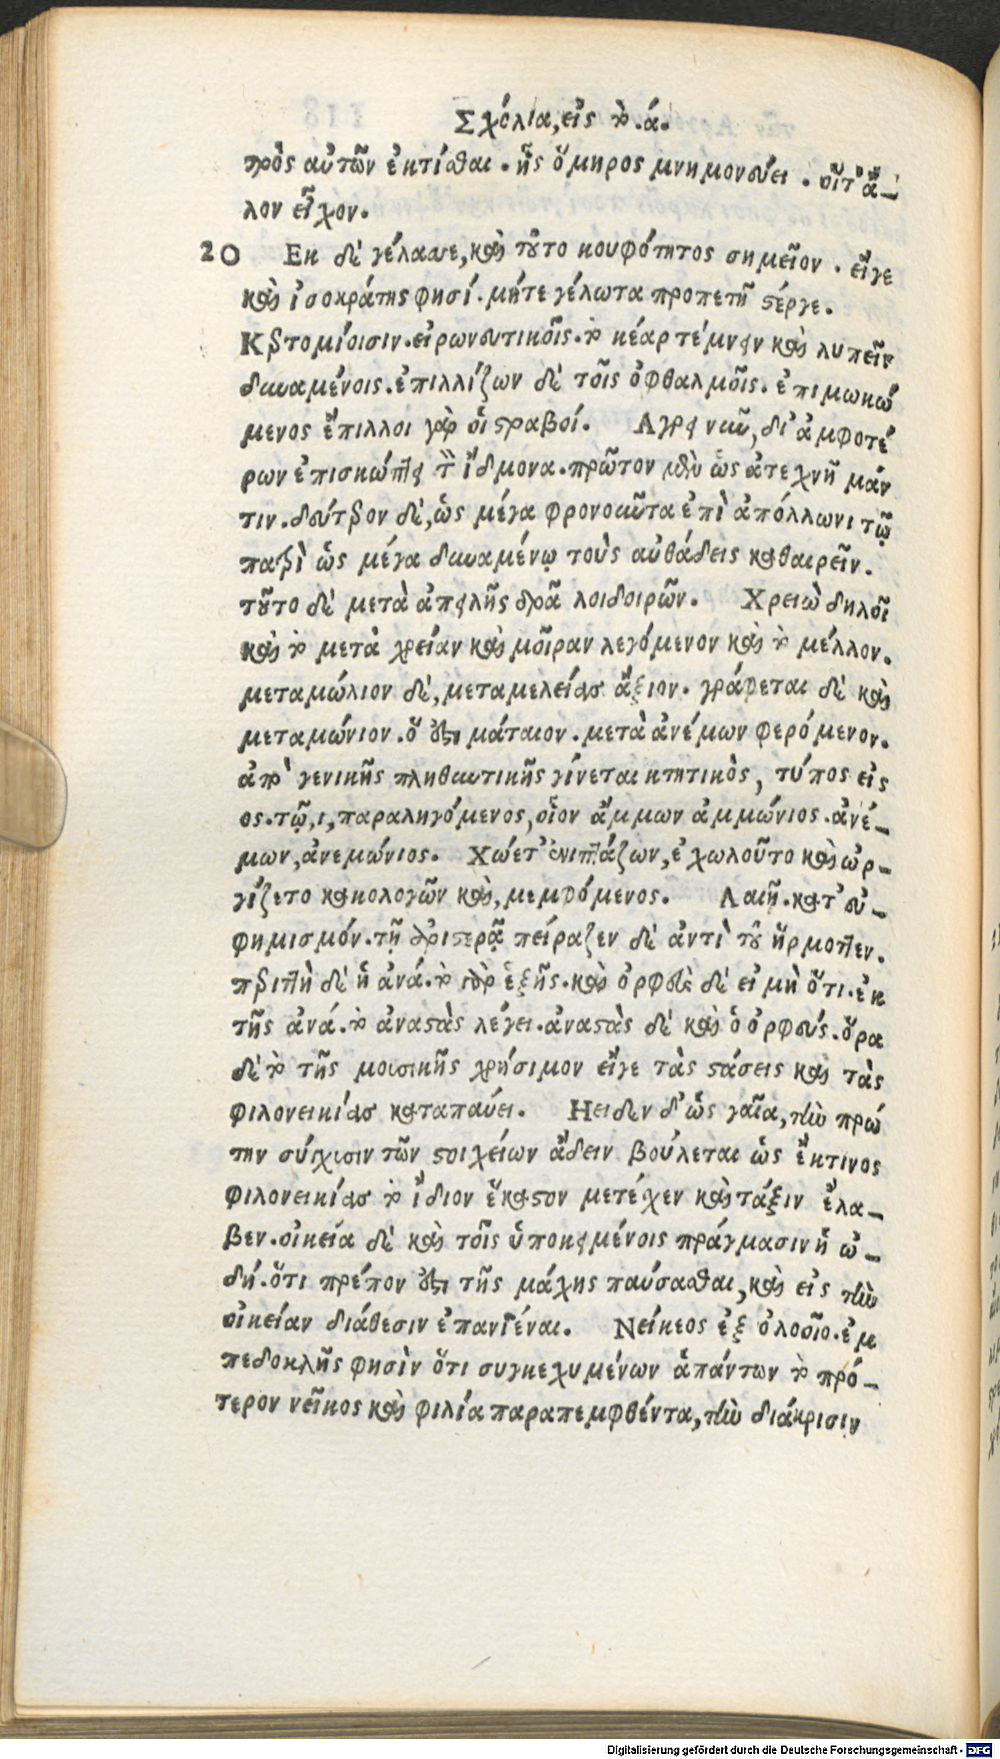 Σχόλια, εἰς τὸ .ά.
πρὸς αὐτῶν ἐκτίσθαι . ἧς ὅμηρος μνημονεύει . οἵτ' ἄ-
λον εἶχον.
20 Εκ δὲ γέλασσε, καὶ τοῦτο κουφότητος σημεῖον . εἴγε
καὶ ἰσοκράτης φησί . μήτε γέλωτα προπετῆ στέργε.
Κερτομίοισιν . εἰρωνευτικοῖς . τὸ κέαρ τέμνειν καὶ λυπεῖν
δυναμένοις . ἐπιλλίζων δὲ τοῖς ὀφθαλμοῖς . ἐπιμωκώ
μενος ἔπιλλοι γὰρ οἱ στραβοί. Αγρει νῦν, δι' ἀμφοτέ
ρων ἐπισκώπτει τὸν ἴδμονα . πρῶτον μὲν ὡς ἀτεχνῆ μάν
τιν . δεύτερον δὲ, ὡς μέγα φρονοῦντα ἐπὶ ἀπόλλωνι τῷ
πατρὶ ὡς μέγα δυναμένῳ τοὺς αὐθάδεις καθαιρεῖν.
τοῦτο δὲ μετὰ ἀπειλῆς ὁρᾶ λοιδοιρῶν. Χρειὼ δηλοῖ
καὶ τὸ μετὰ χρείαν καὶ μοῖραν λεγόμενον καὶ τὸ μέλλον.
μεταμώλιον δὲ, μεταμελείας ἄξιον . γράφεται δὲ καὶ
μεταμώνιον . ὅ ἐστι μάταιον . μετὰ ἀνέμων φερόμενον.
ἀπὸ γενικῆς πληθυντικῆς γίνεται κτητικὸς, τύπος εἰς
ος . τῷ, ι, παραληγόμενος, οἷον ἄμμων ἀμμώνιος . ἀνέ-
μων, ἀνεμώνιος. Χώετ' ἐνιπτάζων, ἐχωλοῦτο καὶ ὠρ-
γίζετο κακολογῶν καὶ, μεμφόμενος. Λαιῇ . κατ' εὐ-
φημισμόν . τῇ ἀριστερᾷ πείραζεν δὲ ἀντὶ τοῦ ἥρμοττεν.
περιττὴ δὲ ἡ ἀνά . τὸ γὰρ ἑξῆς . καὶ ὀρφεὺς δὲ εἰ μὴ ὅτι . ἐκ
τῆς ἀνά . τὸ ἀναστὰς λέγει . ἀναστὰς δὲ καὶ ὁ ὀρφεύς . ὅρα
δὲ τὸ τῆς μουσικῆς χρήσιμον εἴγε τὰς στάσεις καὶ τὰς
φιλονεικίας καταπαύει. Ηειδεν δ' ὡς γαῖα, τὴν πρώ
την σύγχυσιν τῶν στοιχείων ἄδειν βούλεται ὡς ἔκτινος
φιλονεικίας τὸ ἴδιον ἕκαστον μετέχεν καὶ τάξιν ἔλα-
βεν . οἰκεία δὲ καὶ τοῖς ὑποκειμένοις πράγμασιν ἡ ὠ-
δή . ὅτι πρέπον ἐστὶ τῆς μάχης παύσασθαι, καὶ εἰς τὴν
οἰκείαν διάθεσιν ἐπανιέναι. Νείκεος ἐξ ὀλοοῖο . ἐμ
πεδοκλῆς φησὶν ὅτι συγκεχυμένων ἁπάντων τὸ πρό-
τερον νεῖκος καὶ φιλία παραπεμφθέντα, τὴν διάκρισιν
Digitalisierung gefördert durch die Deutsche Forschungsgemeinschaft - DFG